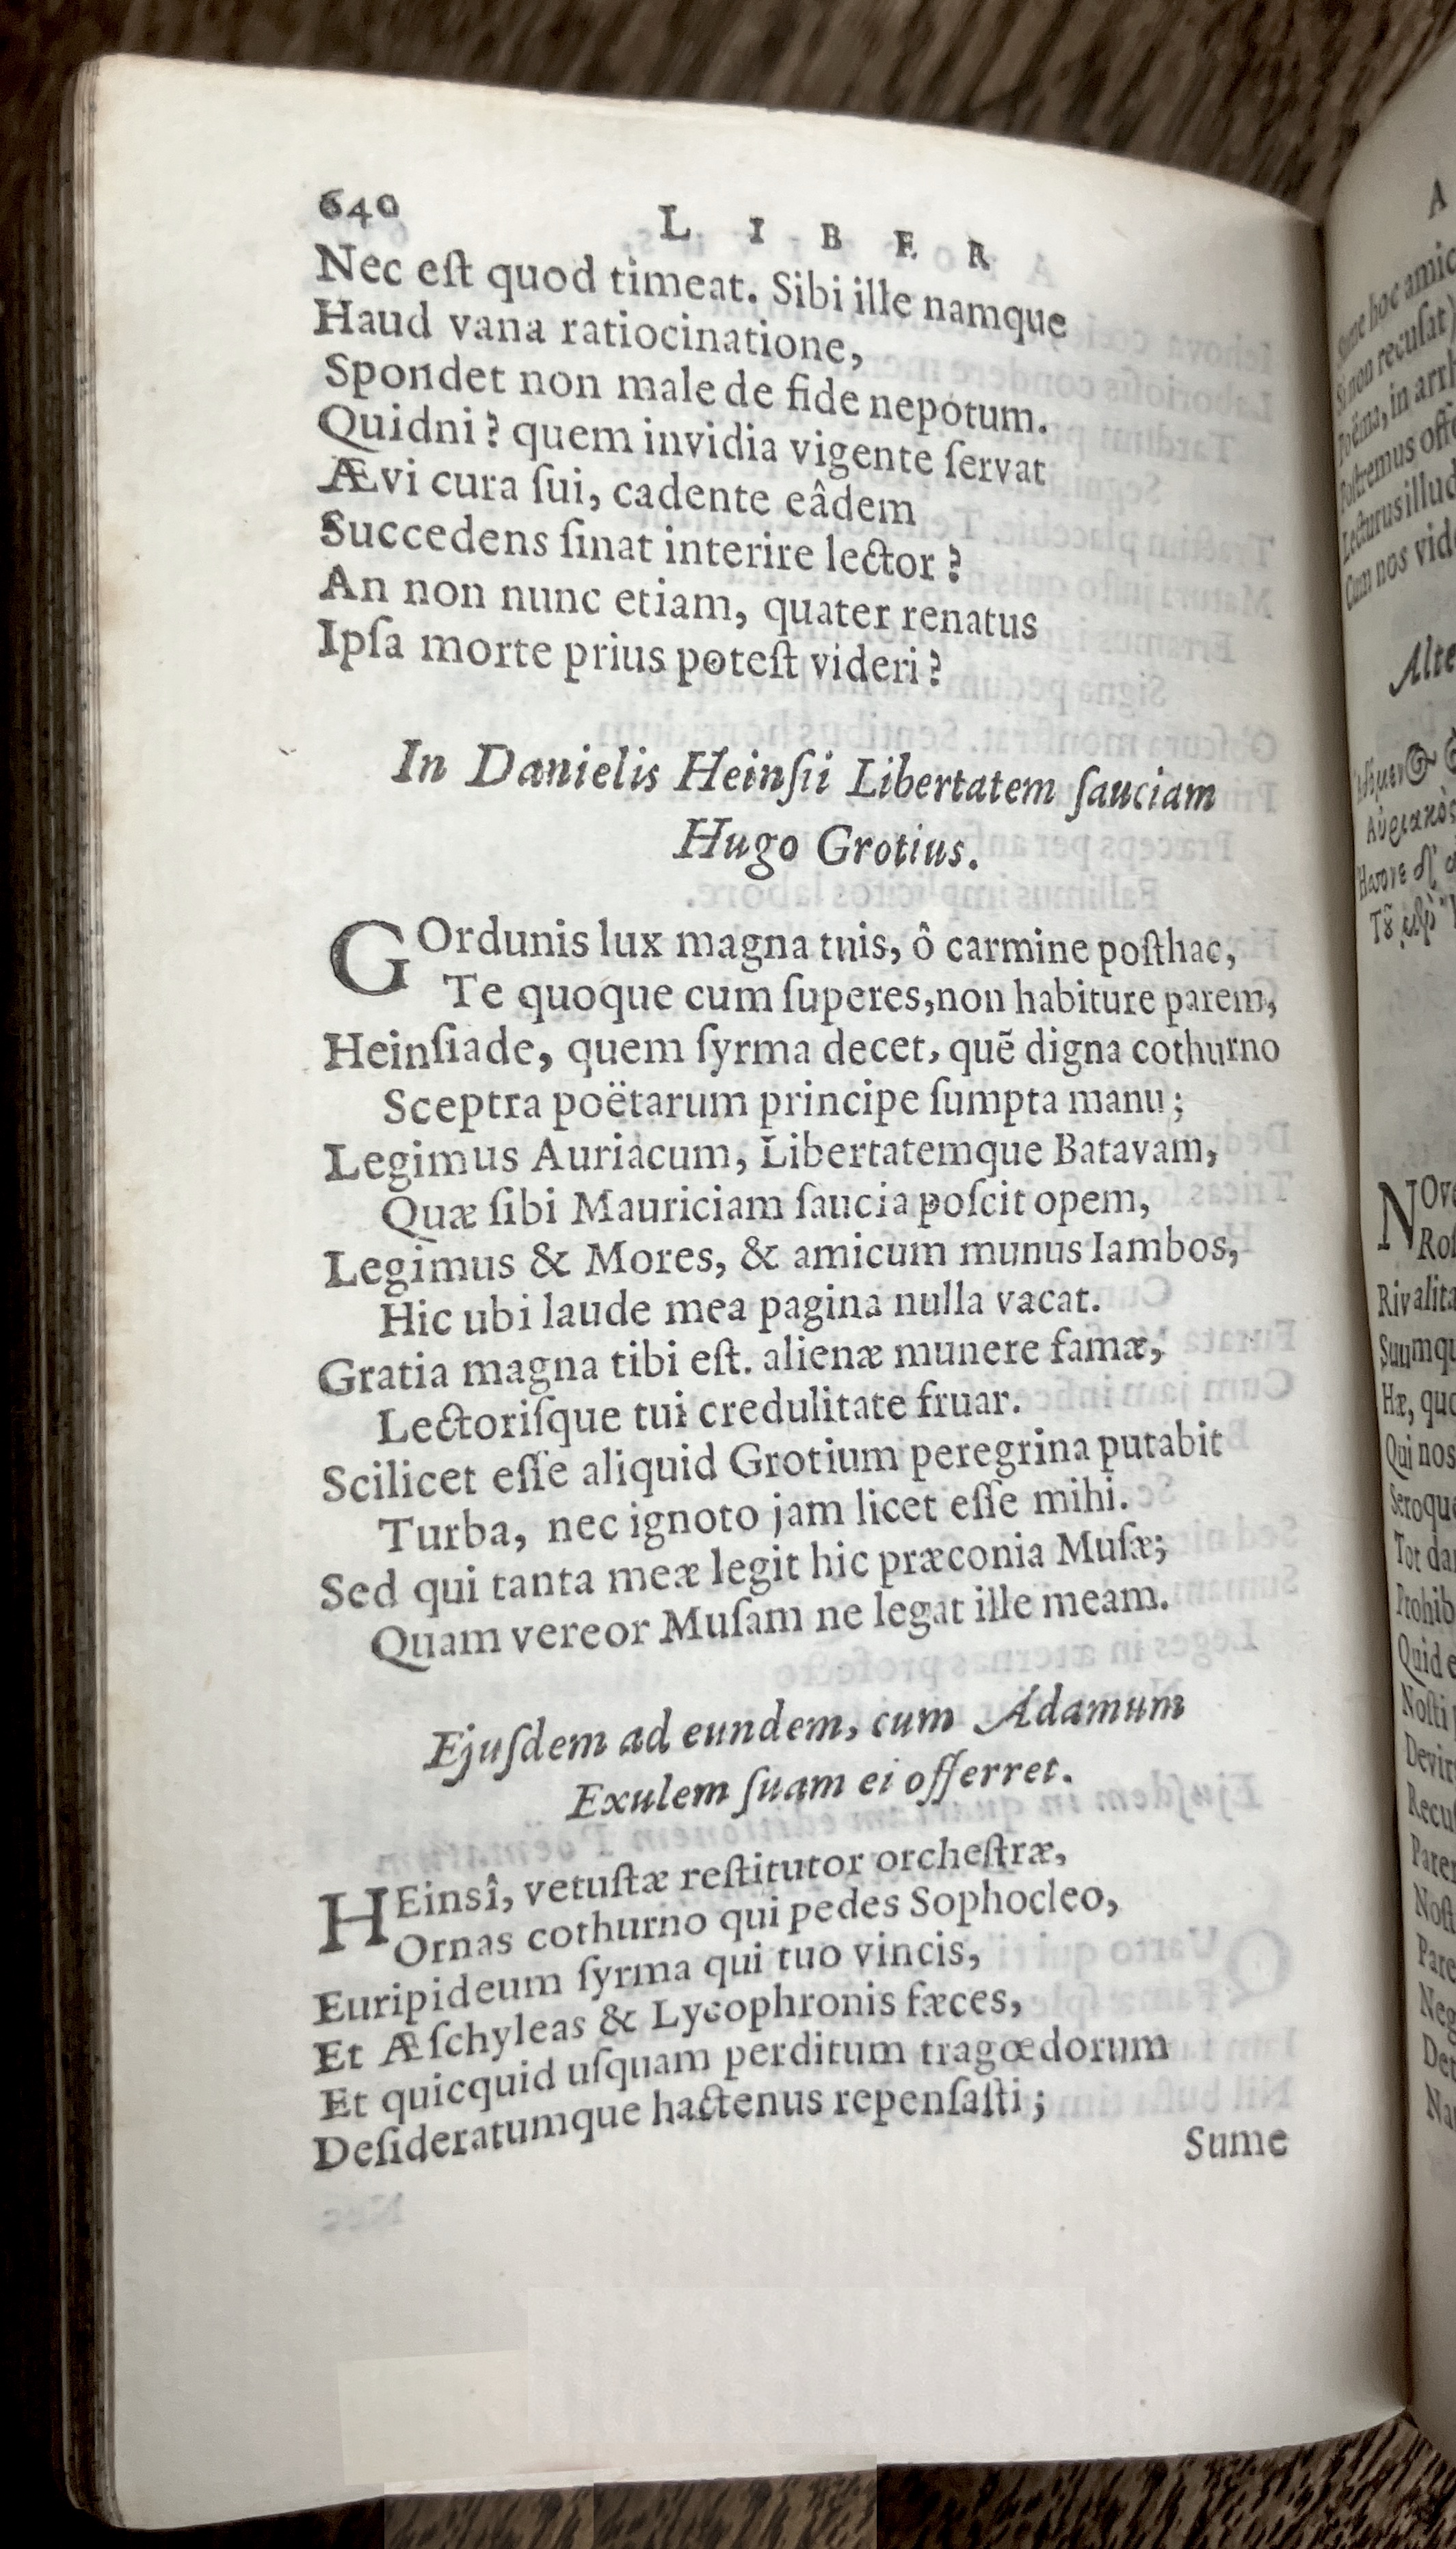 640
L I B E R
Nec eſt quod timeat. Sibi ille namque
Haud vana ratiocinatione,
Spondet non male de fide nepotum.
Quidni? quem invidia vigente ſervat
Ævi cura ſui, cadente eâdem
Succedens ſinat interire lector?
An non nunc etiam, quater renatus
Ipſa morte prius poteſt videri?
In Danielis Heinſii Libertatem ſauciam
Hugo Grotius.
GOrdunis lux magna tuis, ô carmine poſthac,
Te quoque cum ſuperes, non habiture parem,
Heinſiade, quem ſyrma decet, quẽ digna cothurno
Sceptra poëtarum principe ſumpta manu;
Legimus Auriacum, Libertatemque Batavam,
Quæ ſibi Mauriciam ſaucia poſcit opem,
Legimus & Mores, & amicum munus Iambos,
Hic ubi laude mea pagina nulla vacat.
Gratia magna tibi eſt. alienæ munere famæ,
Lectoriſque tui credulitate fruar.
Scilicet eſſe aliquid Grotium peregrina putabit
Turba, nec ignoto jam licet eſſe mihi.
Sed qui tanta meæ legit hic præconia Muſæ;
Quam vereor Muſam ne legat ille meam.
Ejuſdem ad eundem, cum Adamum
Exulem ſuam ei offerret.
HEinsî, vetuſtæ reſtitutor orcheſtræ,
Ornas cothurno qui pedes Sophocleo,
Euripideum ſyrma qui tuo vincis,
Et Æſchyleas & Lycophronis fæces,
Et quicquid uſquam perditum tragœdorum
Deſideratumque hactenus repenſaſti;
Sume
A
Sume hoc
Si non recuſat
Poëma, in
Poſtremus
Lecturus illud
Cum nos
N
Qui nos
Tot
Quid